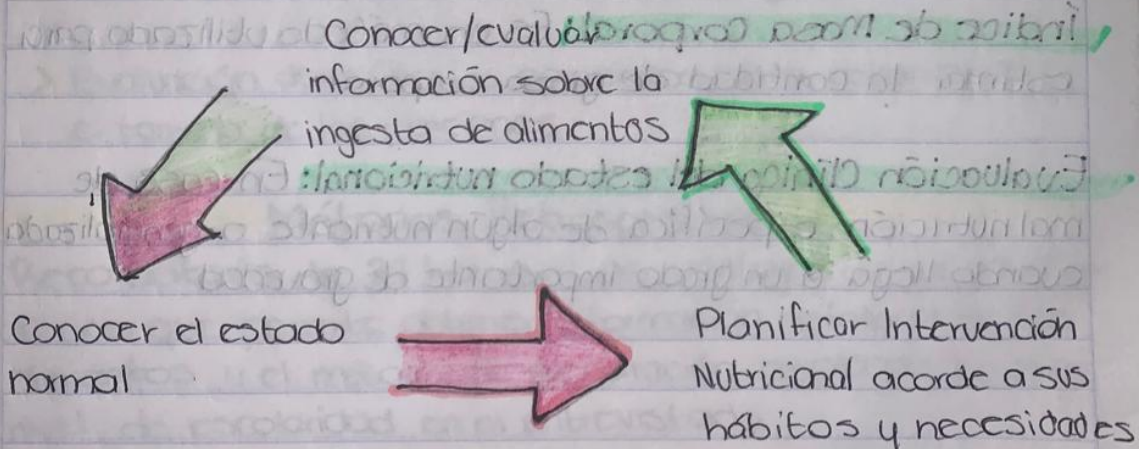 Conocer/evaluar
información sobre la
ingesta de alimentos
Conocer el estado
normal
Planificar Intervención
Nutricional acorde a sus
hábitos y necesidades